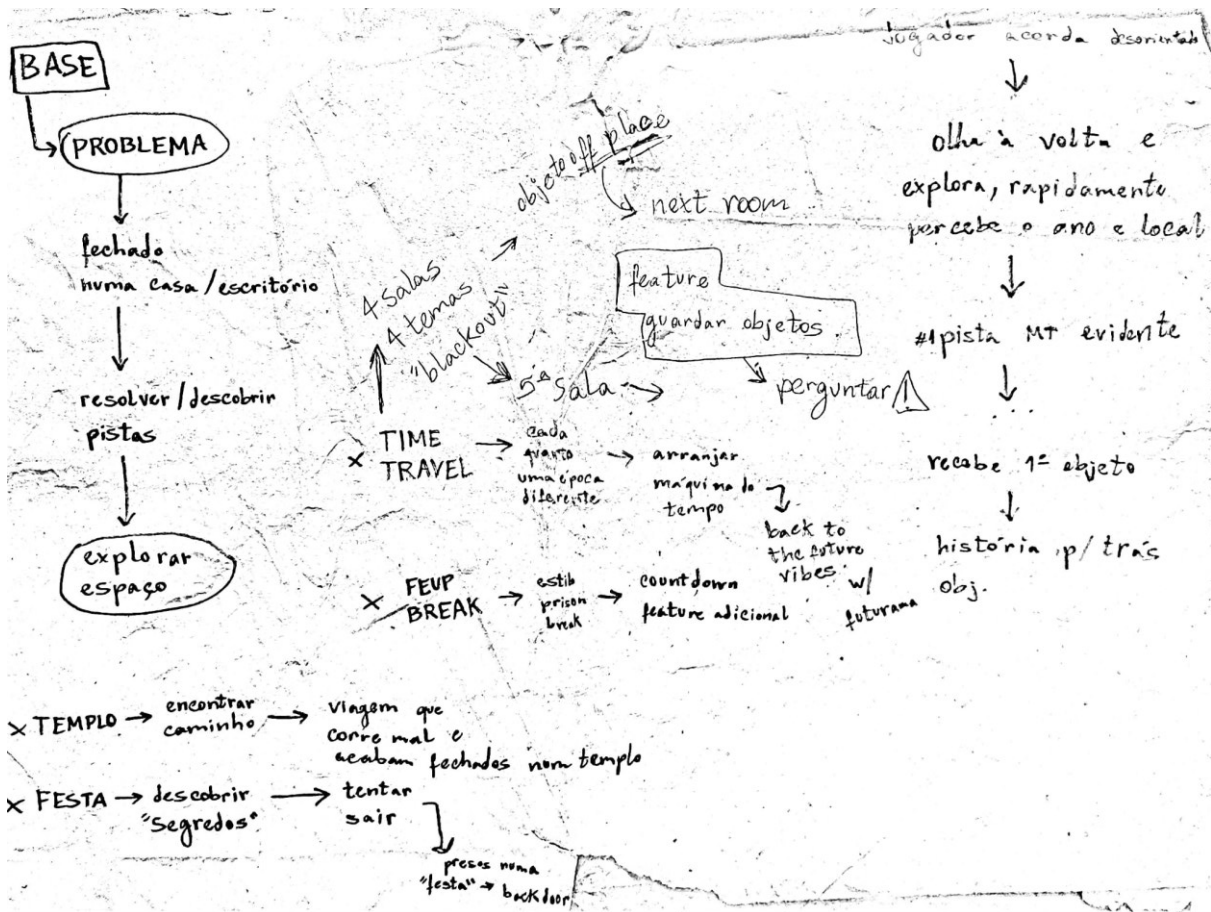 BASE
PROBLEMA
fechado
numa casa/escritório
resolver/descobrir
pistas
explorar
espaço
objeto off place
next room
4 salas
4 temas
"blackout"
5ª Sala
feature
guardar objetos.
perguntar
x TIME
TRAVEL
cada
quarto
uma época
diferente
arranjar
máquina do
tempo
back to
the future
vibes
w/
futurama
x FEUP
BREAK
estilo
prison
break
countdown
feature adicional
x TEMPLO
encontrar
caminho
viagem que
corre mal e
acabam fechados num templo
x FESTA
descobrir
"segredos"
tentar
sair
presos numa
"festa" → backdoor
Jogador acorda desorientado
olha à volta e
explora, rapidamente
percebe o ano e local
#1 pista MT evidente
...
recebe 1º objeto
história p/ trás
obj.